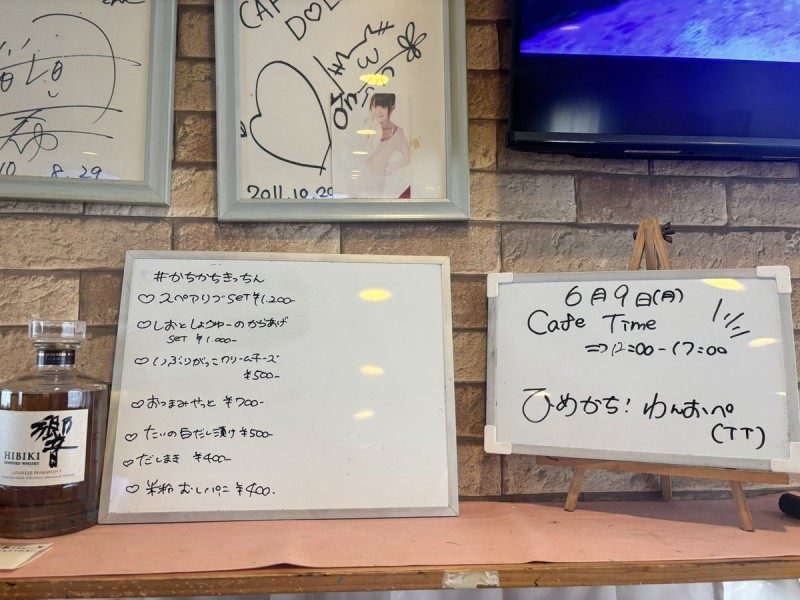 CAF
DOL
8.29
2011.10.29
#かちかちきっちん
♡スペアリブSET ¥1,200-
♡しおとしょうゆーのからあげ
SET ¥1,000-
♡いぶりがっこクリームチーズ
¥500-
♡おつまみやっと ¥700-
♡たいの白だし漬け ¥500-
♡だしまき ¥400-
♡米粉むしパン ¥400.
6月9日(月)
Cafe Time
⇒12:00-17:00
ひめかち! わんおぺ
(TT)
響
HIBIKI
SUNTORY WHISKY
JAPANESE HARMONY